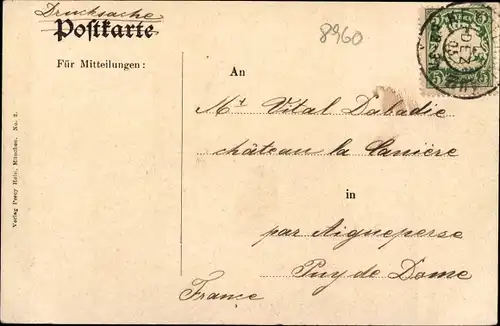 Drucksache
Postkarte
8960
Für Mitteilungen:
An
Mr Vital Dabadie
château la Canière
in
par Aigueperse
Puy de Dome
France
Verlag Percy Hein, München. No. 2.
5 5